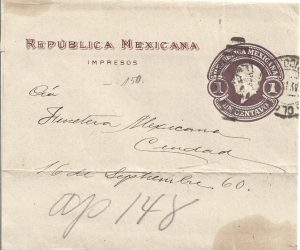 REPÚBLICA MEXICANA
IMPRESOS
REPÚBLICA MEXICANA
1 1
UN CENTAVO
- 150.
Mexicana
Ciudad
16 de Septiembre 60.
ap 148